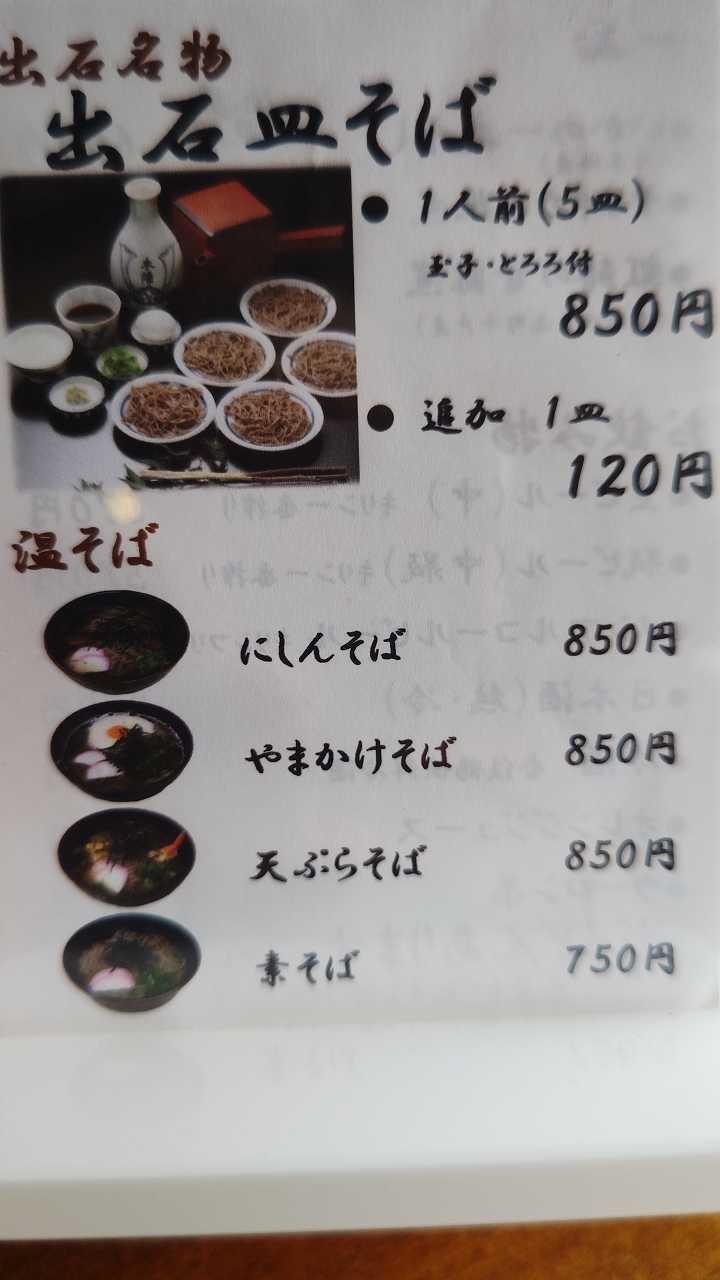 出石名物
出石皿そば
● 1人前(5皿)
玉子・とろろ付
850円
● 追加 1皿
120円
温そば
にしんそば 850円
やまかけそば 850円
天ぷらそば 850円
素そば 750円